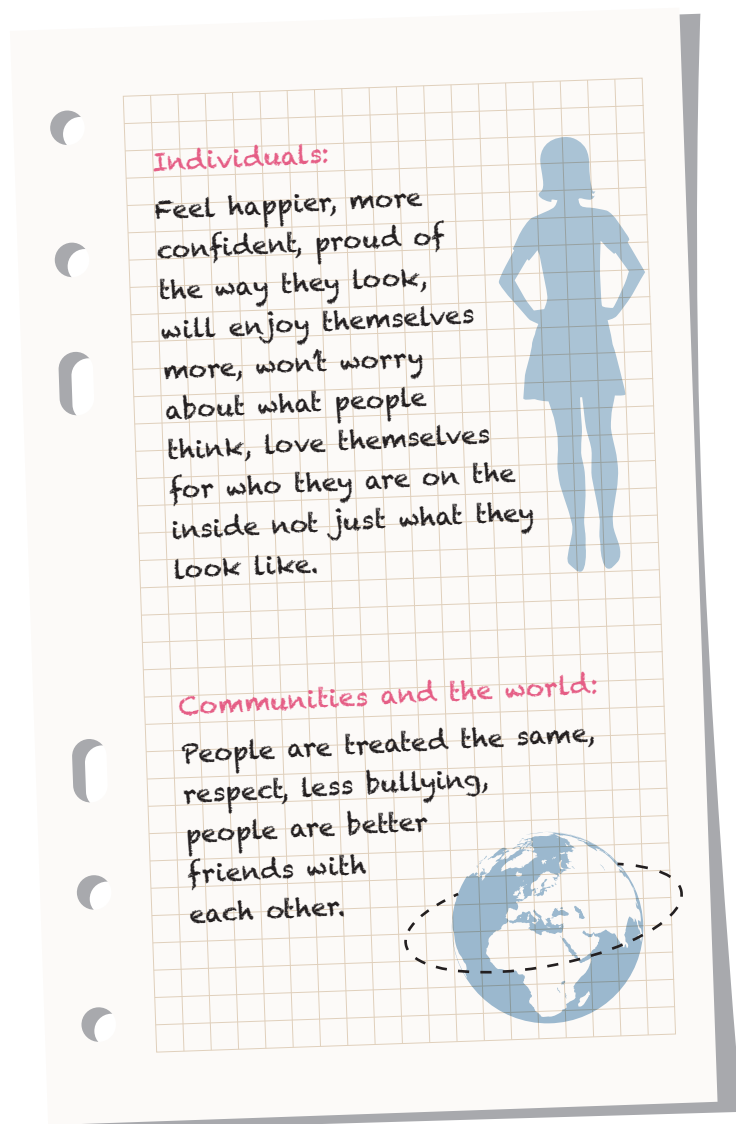 Individuals:
Feel happier, more
confident, proud of
the way they look,
will enjoy themselves
more, won't worry
about what people
think, love themselves
for who they are on the
inside not just what they
look like.
Communities and the world:
People are treated the same,
respect, less bullying,
people are better
friends with
each other.